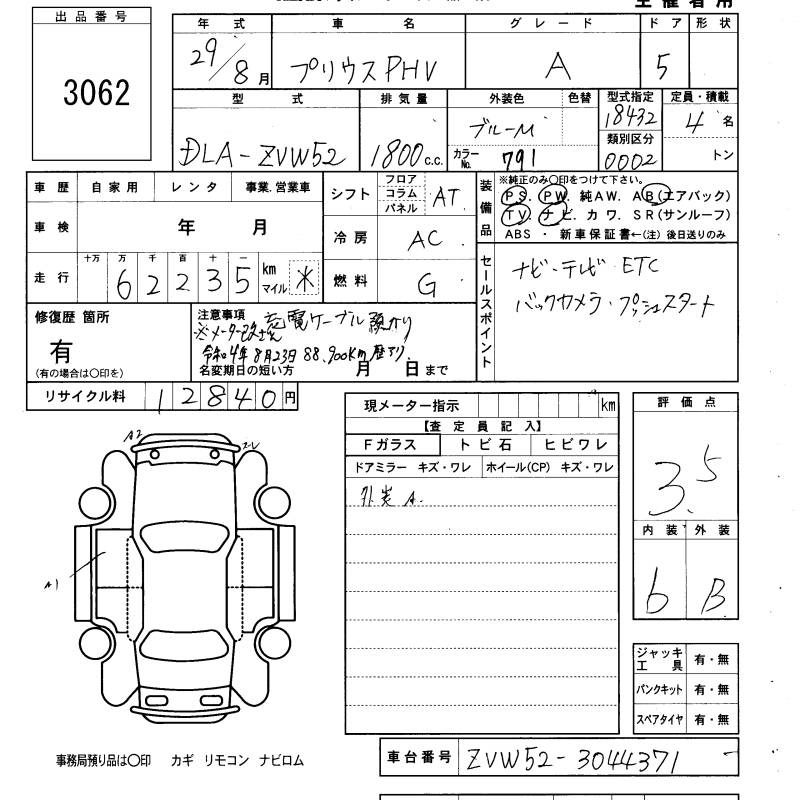 主催者用
出品番号
3062
年式 車名 グレード ドア 形状
29/8月 プリウスPHV A 5
型式 排気量 外装色 色替 型式指定 定員・積載
DLA-ZVW52 1800c.c. ブルーM 18432 4名
カラーNo. 791 類別区分 0002 トン
車歴 自家用 レンタ 事業.営業車
車検 年 月
走行 十万 万 千 百 十 一
62235 km マイル ※
シフト フロア コラム パネル AT
冷房 AC
燃料 G
装備品
※純正のみ○印をつけて下さい。
PS. PW. 純AW. AB(エアバック)
TV. ナビ. カワ. SR(サンルーフ)
ABS ・ 新車保証書←(注)後日送りのみ
セールスポイント
ナビ・テレビ ETC
バックカメラ・プッシュスタート
修復歴 箇所
有
(有の場合は○印を)
注意事項 充電ケーブル預かり
※メーター改ざん
令和4年8月23日 88,900km歴アリ
名変期日の短い方 月 日まで
リサイクル料 12840円
現メーター指示 km
【査定員記入】
Fガラス トビ石 ヒビワレ
ドアミラー キズ・ワレ ホイール(CP) キズ・ワレ
外装 A.
評価点
3.5
内装 外装
6 B
A2
A1
ジャッキ工具 有・無
パンクキット 有・無
スペアタイヤ 有・無
事務局預り品は○印 カギ リモコン ナビロム
車台番号 ZVW52-3044371